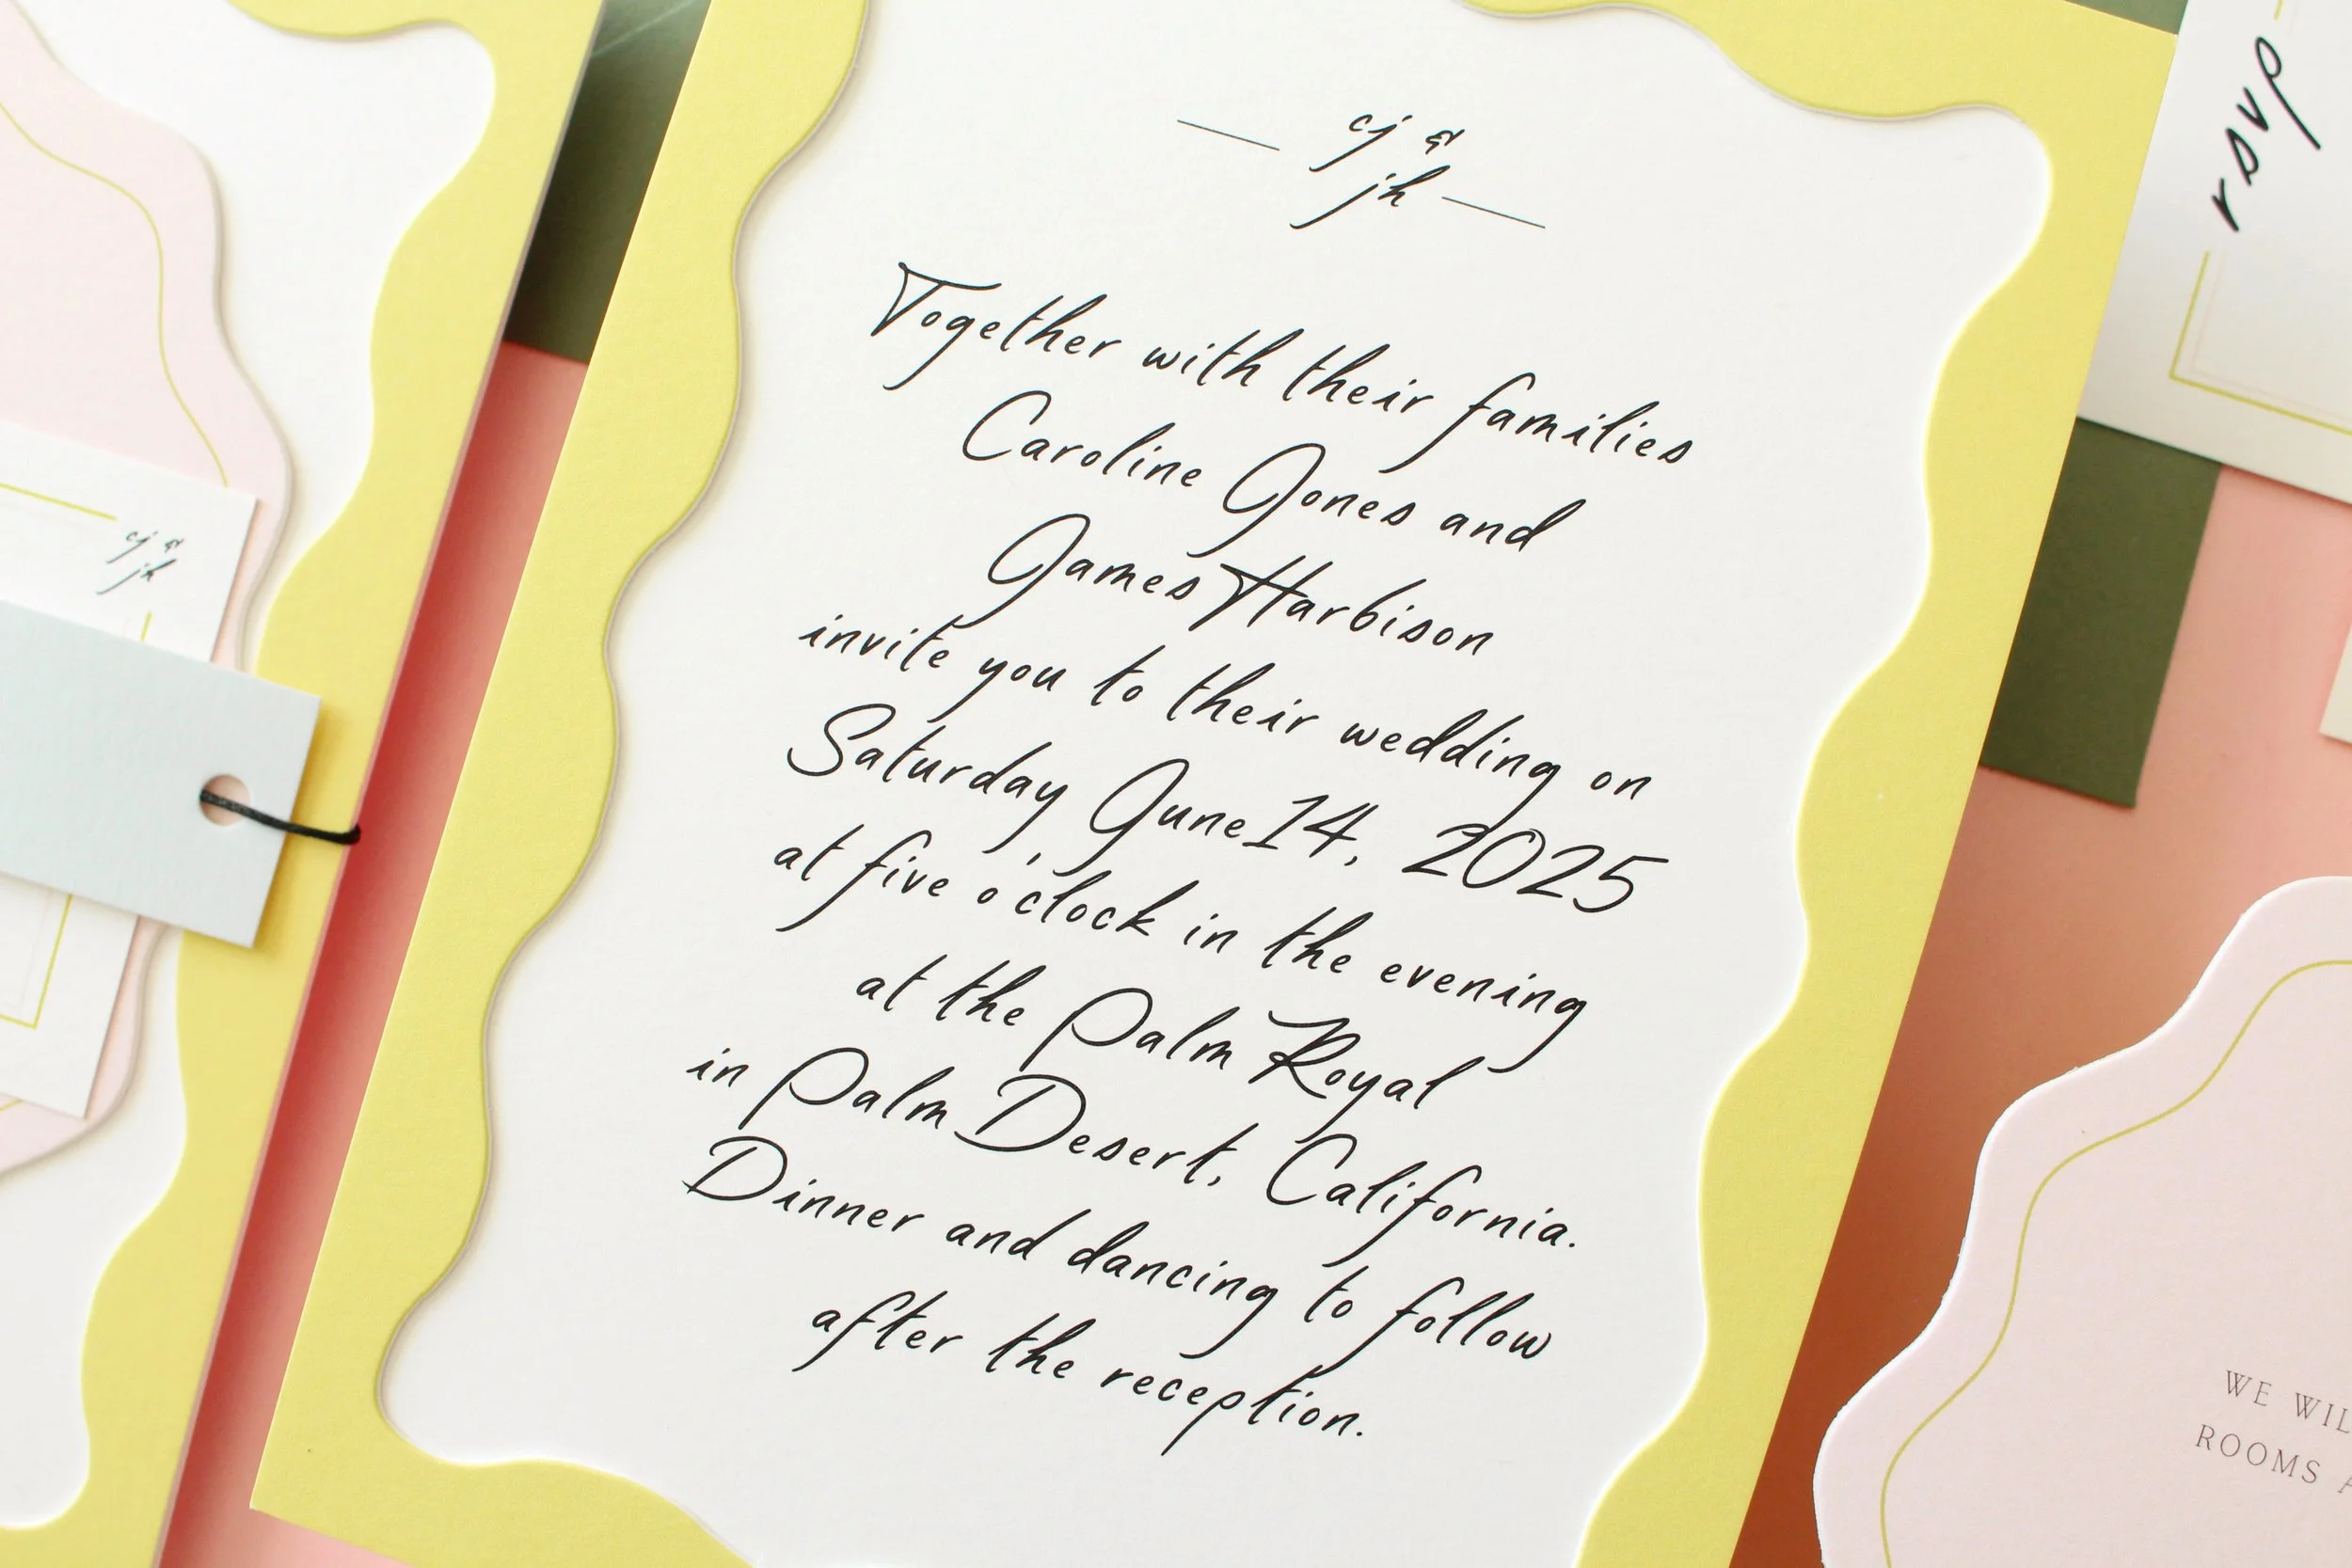 cj &
jh
Together with their families
Caroline Jones and
James Harbison
invite you to their wedding on
Saturday June 14, 2025
at five o'clock in the evening
at the Palm Royal
in Palm Desert, California.
Dinner and dancing to follow
after the reception.
cj &
jh
rsvp
WE WIL
ROOMS A